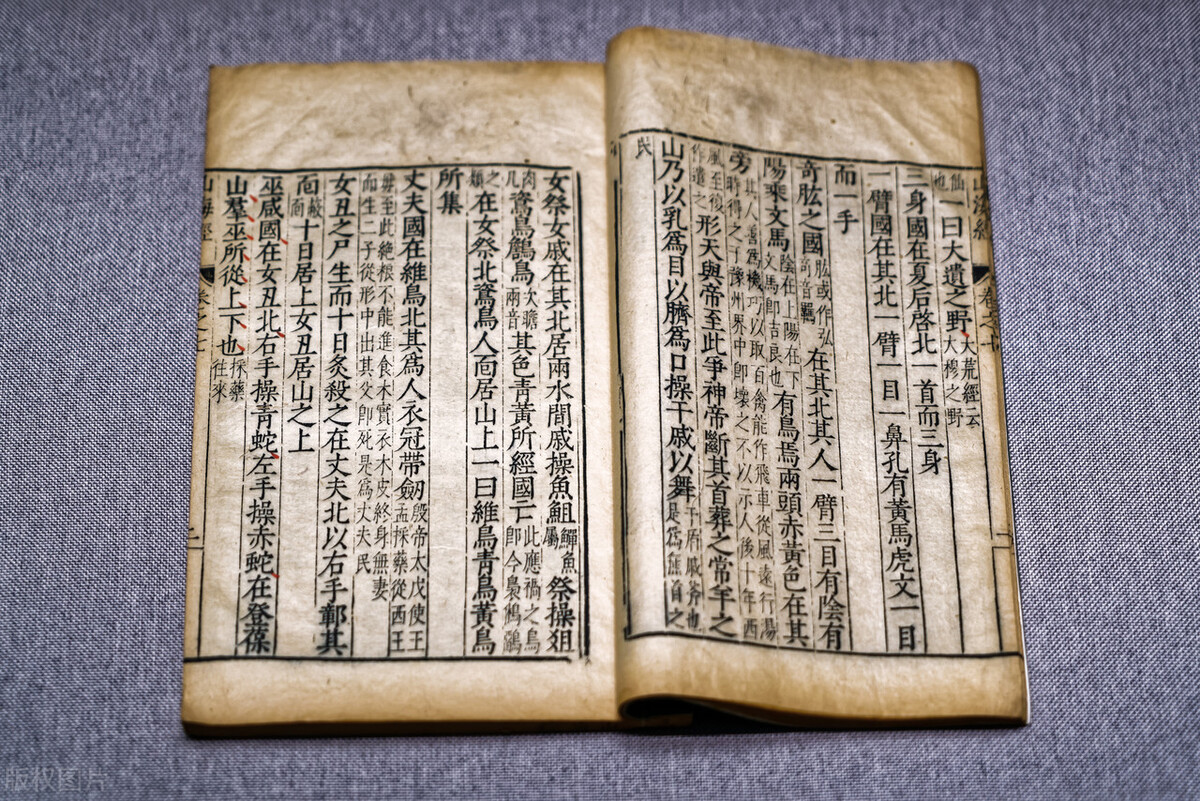 山海經 卷之七 二
仙也一曰大遺之野大荒經云大穆之野
三身國在夏后啓北一首而三身
一臂國在其北一臂一目一鼻孔有黃馬虎文一目
而一手
奇肱之國肱或作弘奇音羈在其北其人一臂三目有陰有
陽乘文馬陰在上陽在下文馬即吉良也有鳥焉兩頭赤黃色在其
旁其人善爲機巧以取百禽能作飛車從風遠行湯時得之于豫州界中即壞之不以示人後十年西
風至復作遣之形天與帝至此爭神帝斷其首葬之常羊之
山乃以乳爲目以臍爲口操干戚以舞干盾戚斧也是爲無首之
民
女祭女戚在其北居兩水間戚操魚䱉鱓魚屬祭操俎
肉几鴍鳥鶬鳥次瞻兩音其色青黃所經國亡此應禍之鳥即今梟鵂鶹
之類在女祭北鴍鳥人面居山上一曰維鳥青鳥黃鳥
所集
丈夫國在維鳥北其爲人衣冠帶劒殷帝太戊使王孟採藥從西王
母至此絶根不能進食木實衣木皮終身無妻而生二子從形中出其父即死是爲丈夫民
女丑之尸生而十日炙殺之在丈夫北以右手鄣其
面蔽面十日居上女丑居山之上
巫咸國在女丑北右手操青蛇左手操赤蛇在登葆
山羣巫所從上下也採藥往來
山海經 卷之七 二
版权图片